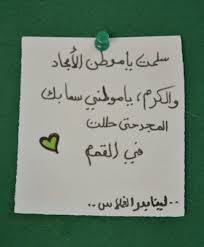 سلمت يا موطن الأمجاد
والكرم، يا موطني سما بك
المجد حتى حللت
في القمم